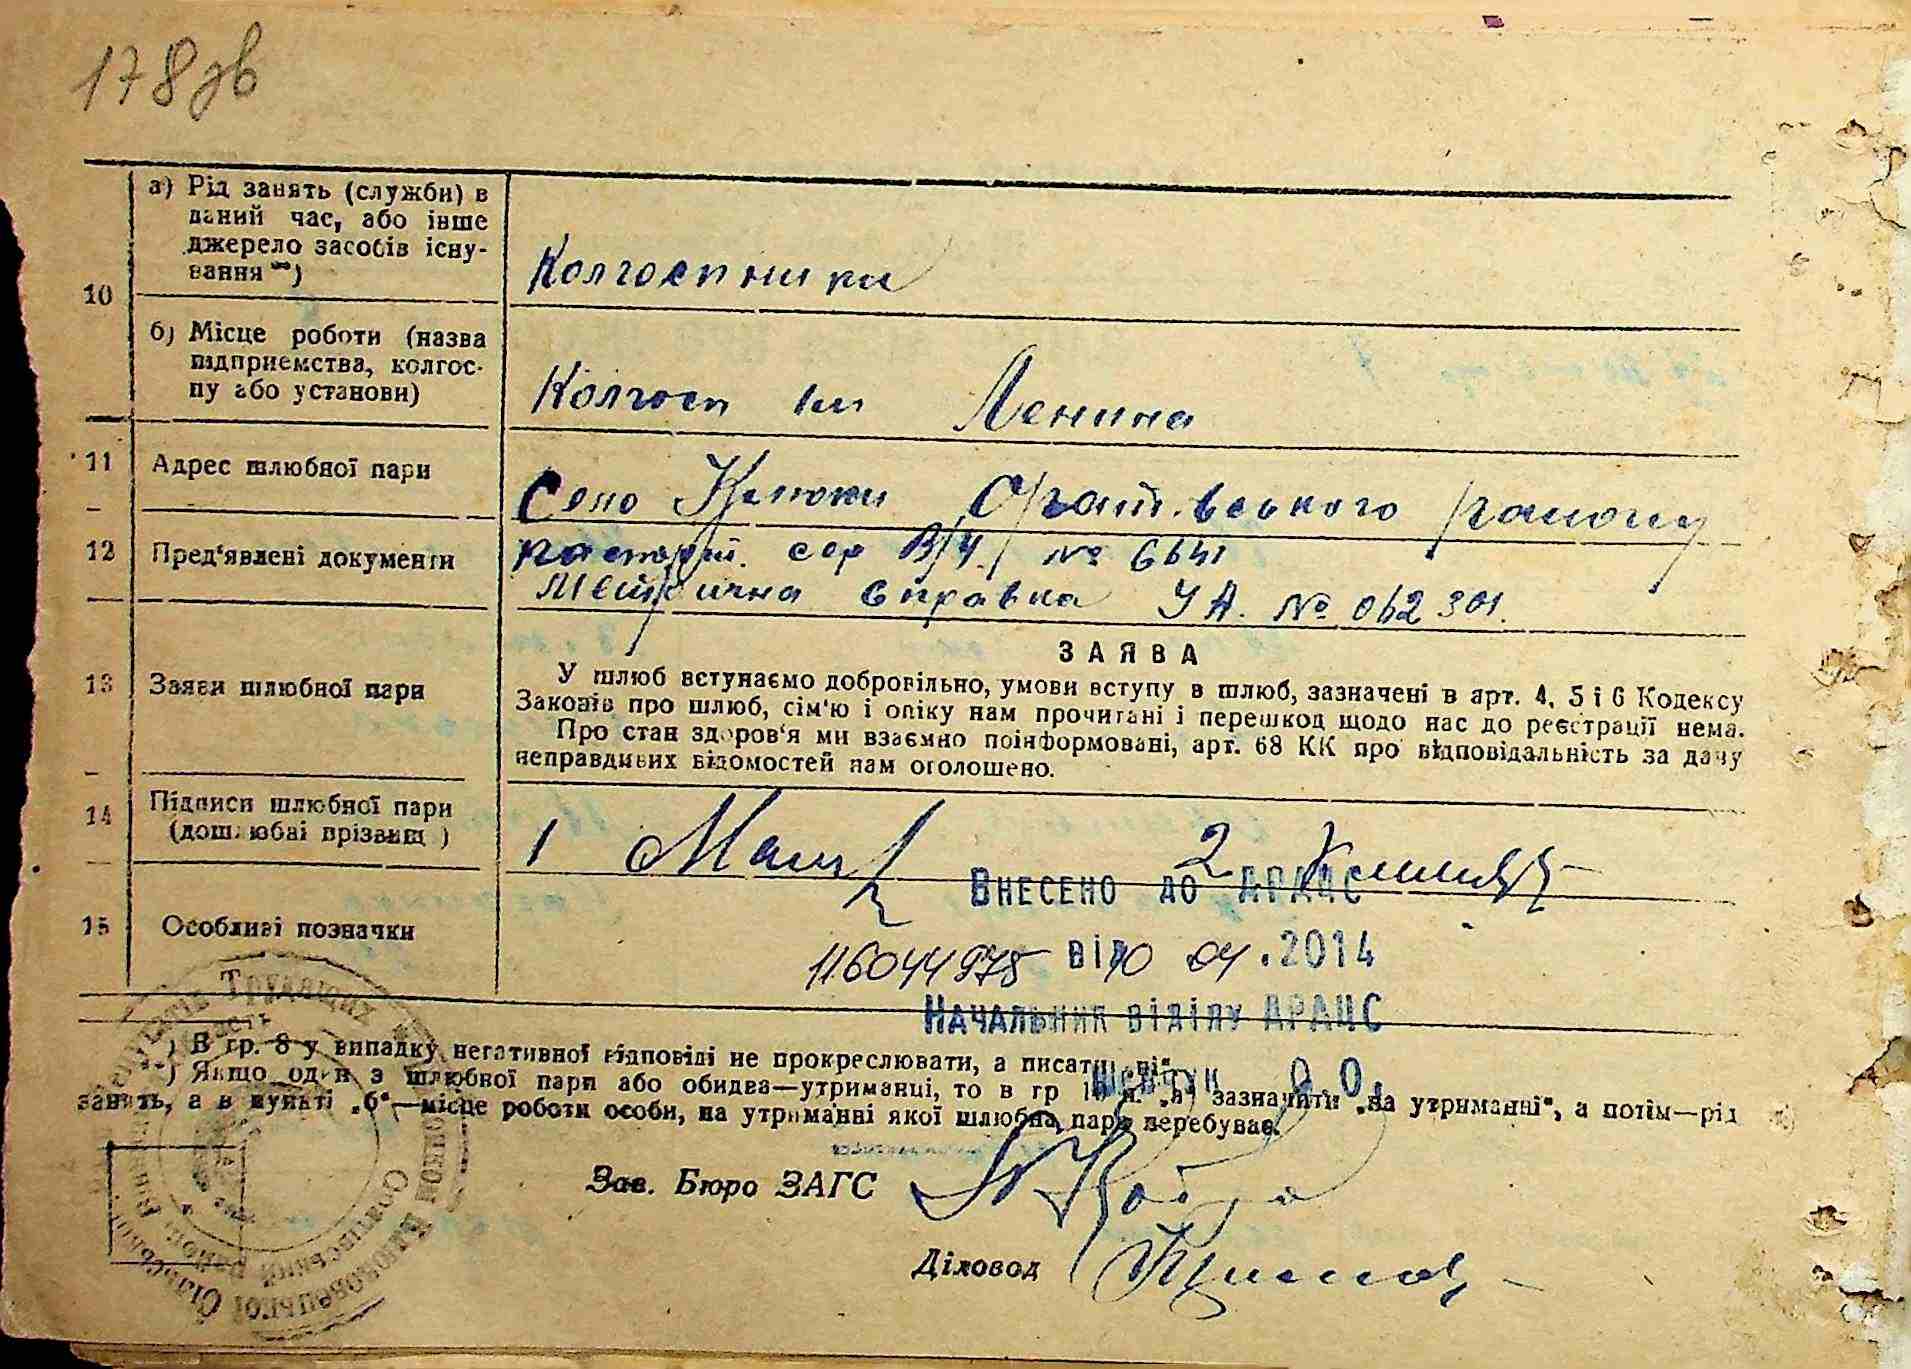 178зв
10
а) Рід занять (служби) в
даний час, або інше
джерело засобів існу-
вання **)
Колгоспники
б) Місце роботи (назва
підприємства, колгос-
пу або установи)
Колгосп ім Леніна
11 Адрес шлюбної пари
Село Оратівського району
12 Пред'явлені документи
паспорт. сер № 6641
Метрична справка УА. № 062 301.
13 Заяви шлюбної пари
ЗАЯВА
У шлюб вступаємо добровільно, умови вступу в шлюб, зазначені в арт. 4, 5 і 6 Кодексу
Законів про шлюб, сім'ю і опіку нам прочитані і перешкод щодо нас до реєстрації нема.
Про стан здоров'я ми взаємно поінформовані, арт. 68 КК про відповідальність за дачу
неправдивих відомостей нам оголошено.
14 Підписи шлюбної пари
(дошлюбні прізвищ )
1 2
15 Особливі позначки
Внесено до ДРАЦС
116044975 від 10 04 .2014
Начальник відділу ДРАЦС
Шевчук О.О.
*) В гр. 8 у випадку негативної відповіді не прокреслювати, а писати „ні“
**) Якщо один з шлюбної пари або обидва—утриманці, то в гр 10 п. „а“ зазначити „на утриманні“, а потім—рід
занять, а в пункті „б“—місце роботи особи, на утриманні якої шлюбна пара перебуває.
Зав. Бюро ЗАГС
Діловод
депутатів Трудящих
Оратівський район
Сільської